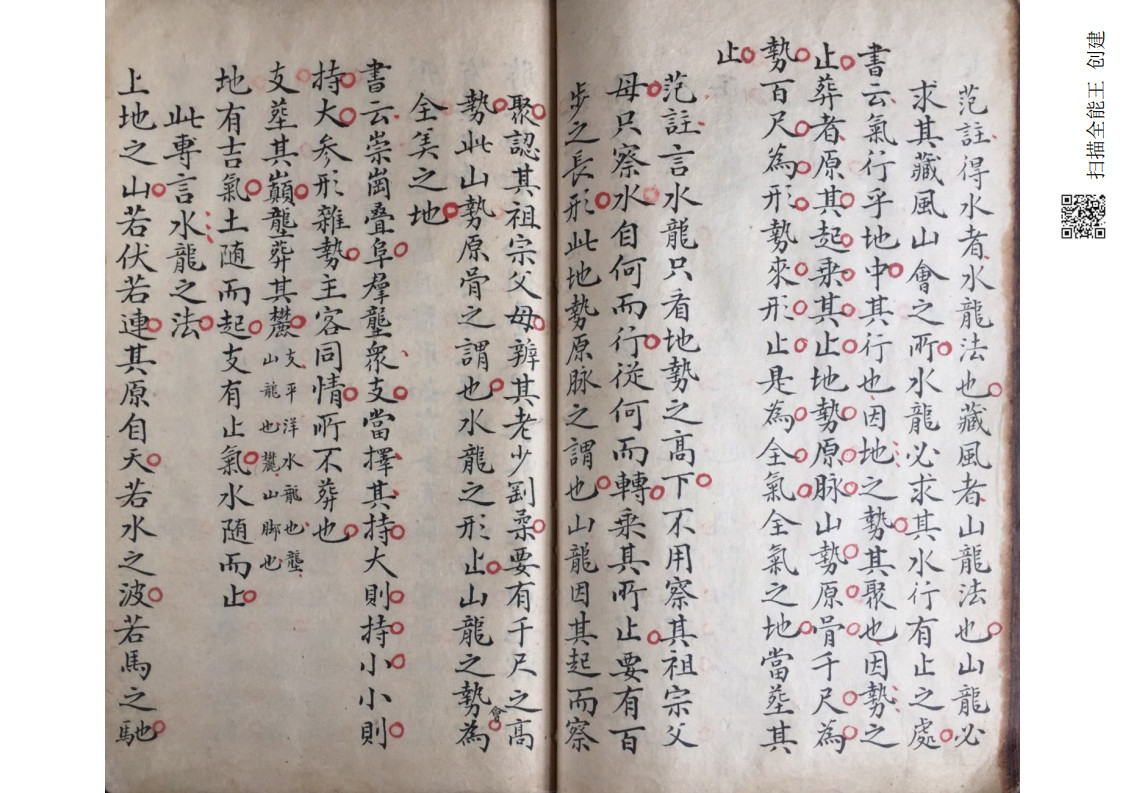 范註得水者水龍法也藏風者山龍法也山龍必
求其藏風山會之所水龍必求其水行有止之處
書云氣行乎地中其行也因地之勢其聚也因勢之
止葬者原其起乘其止地勢原脉山勢原骨千尺為
勢百尺為形勢來形止是為全氣全氣之地當塟其
止
范註言水龍只看地勢之高下不用察其祖宗父
母只察水自何而行從何而轉乘其所止要有百
步之長形此地勢原脉之謂也山龍因其起而察
聚認其祖宗父母辨其老少剛柔要有千尺之高
勢此山勢原骨之謂也水龍之形止山龍之勢為
會
全美之地
書云崇崗叠阜羣壟衆支當擇其持大則持小小則
持大参形雜勢主客同情所不葬也
支塟其巔壟葬其麓支平洋水龍也壟
山龍也麓山脚也
地有吉氣土随而起支有止氣水随而止
此專言水龍之法
上地之山若伏若連其原自天若水之波若馬之馳
扫描全能王 创建